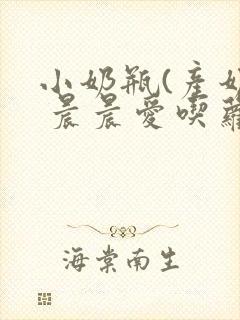 小奶瓶(產奶
晨晨愛喫蘿
海棠南生